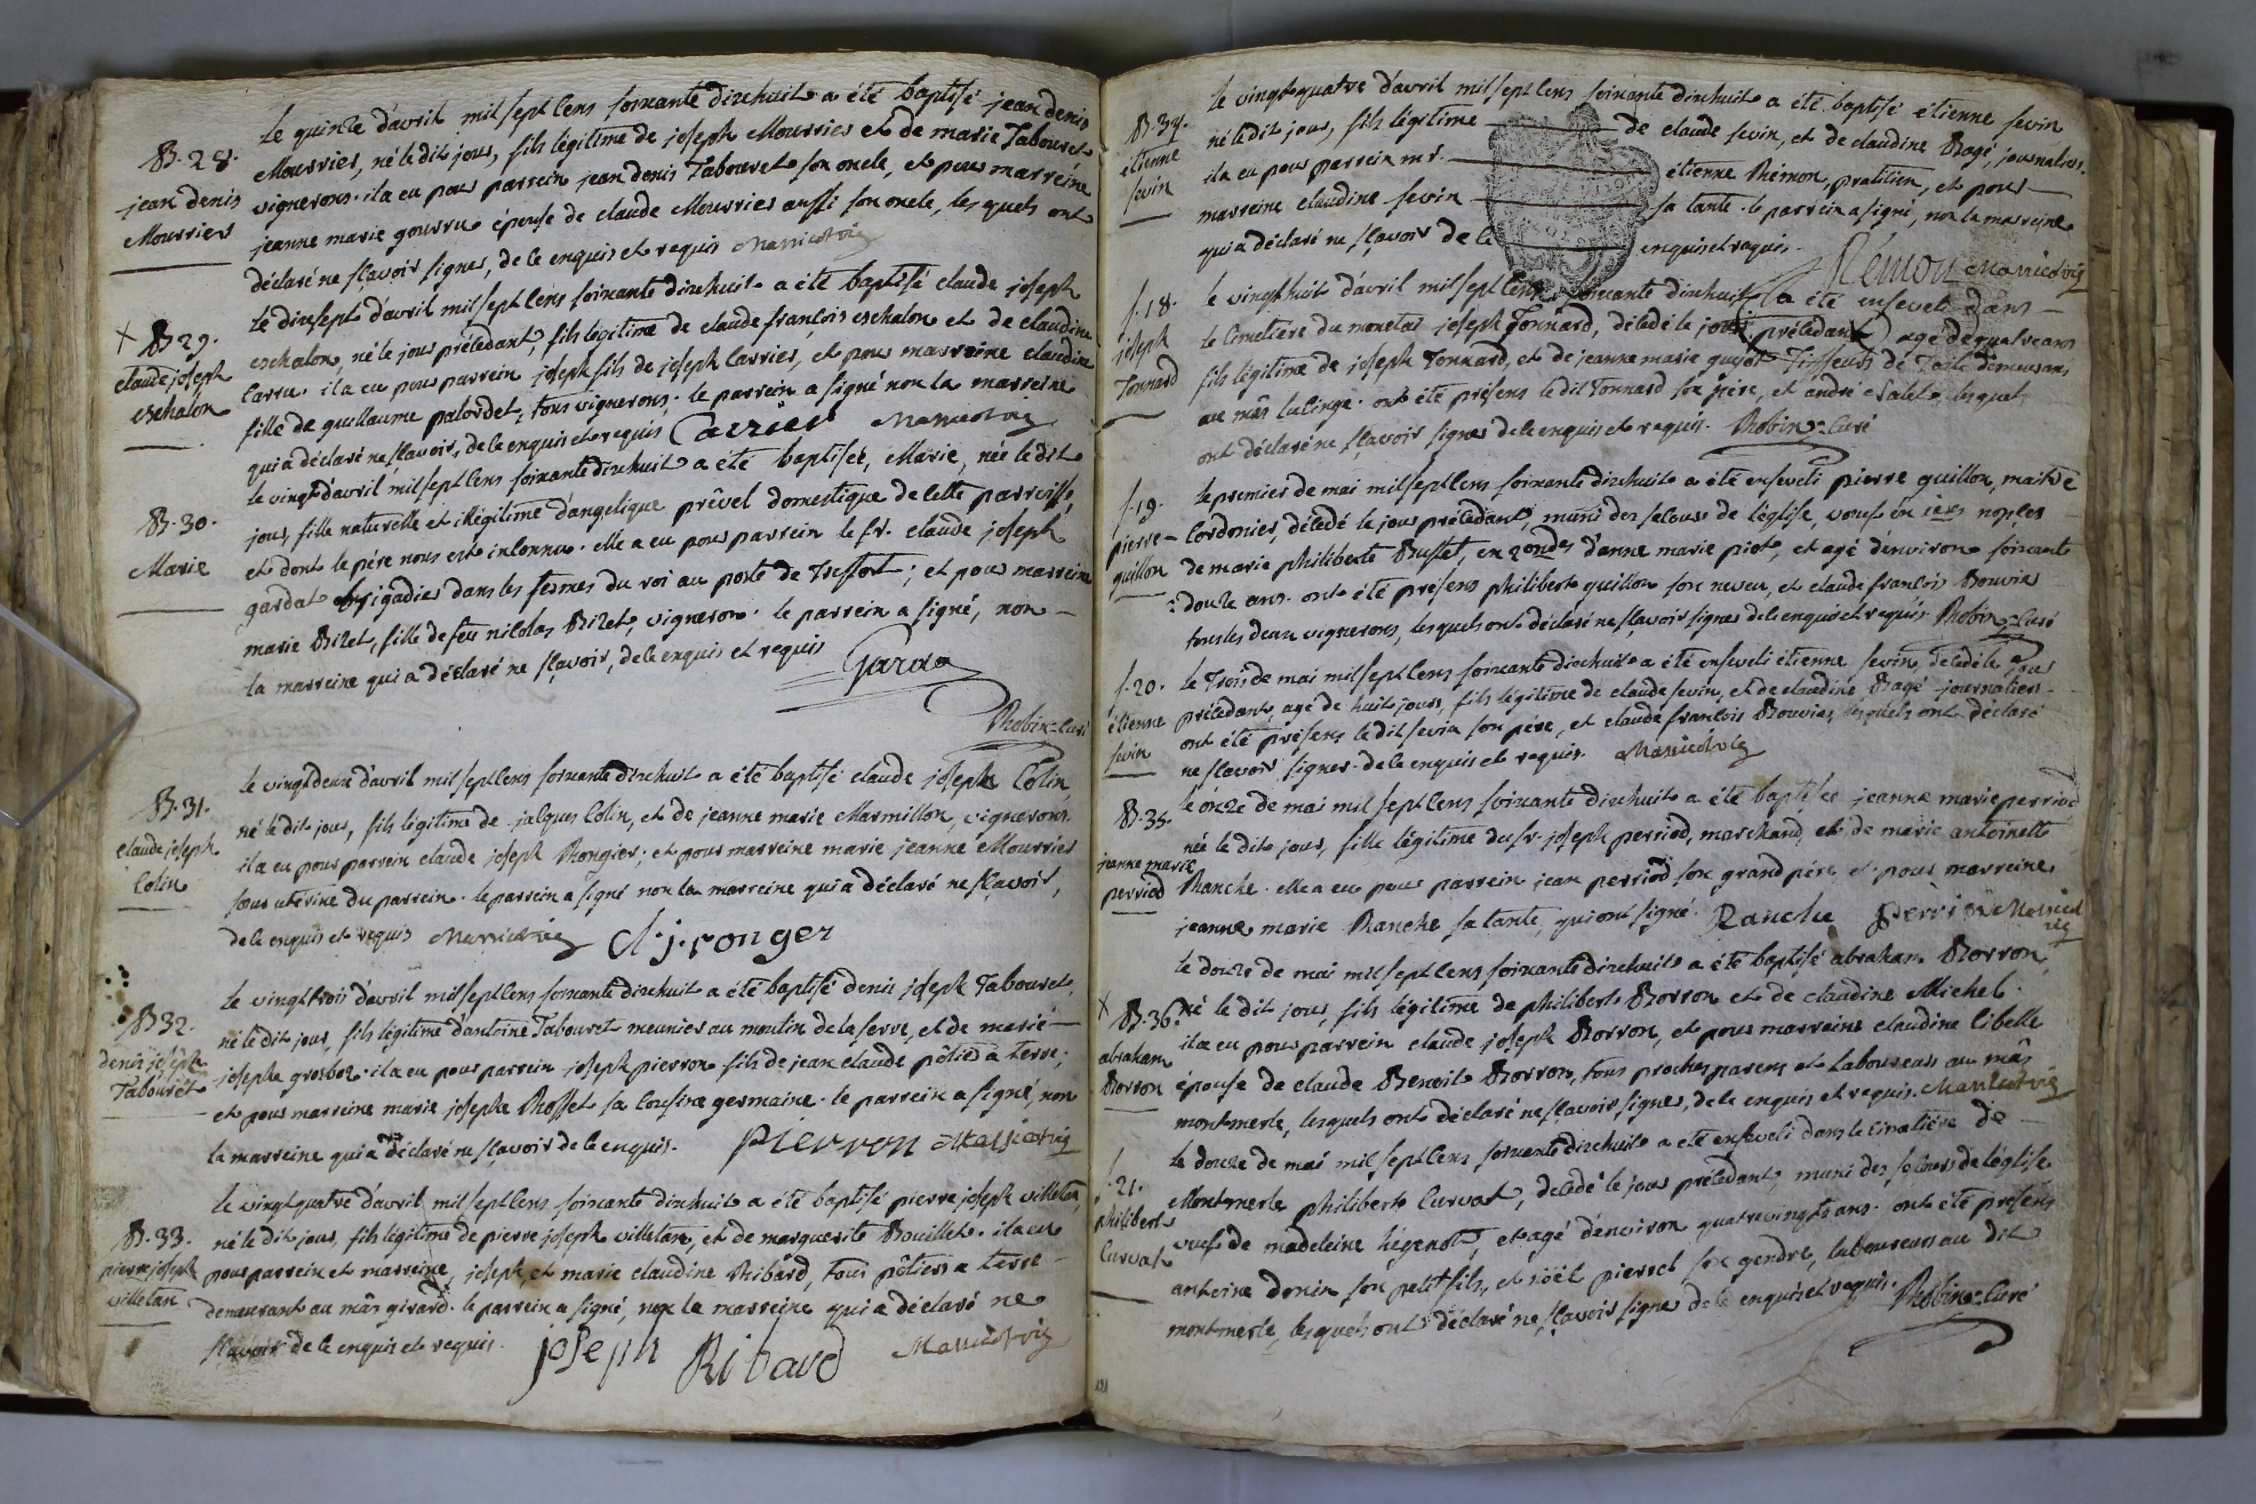 B. 28.
jean denis
Mourries
le quinze d'avril mil sept cens soixante dixhuit a été baptisé jean denis
Mourries, né le dit jour, fils légitime de joseph Mourries et de marie Tabouret
vignerons. il a eu pour parrein jean denis Tabouret son oncle, et pour marreine
jeanne marie gourru épouse de claude Mourries aussi son oncle, lesquels ont
déclaré ne sçavoir signer, de ce enquis et requis
+ B 29.
claude joseph
eschalon
le dixsept d'avril mil sept cens soixante dixhuit a été baptisé claude joseph
eschalon, né le jour précédant, fils légitime de claude francois eschalon et de claudine
carru. il a eu pour parrein joseph fils de joseph carrier, et pour marreine claudine
fille de guillaume palordet, tous vignerons. le parrein a signé non la marreine
qui a déclaré ne sçavoir, de ce enquis et requis Carrier
B. 30.
Marie
le vingt d'avril mil sept cens soixante dixhuit a été baptisée, Marie, née le dit
jour, fille naturelle et illégitime d'angelique prêvel domestique de cette parroisse,
et dont le pére nous est inconnu. elle a eu pour parrein le sr. claude joseph
gardat brigadier dans les fermes du roi au poste de Treffort; et pour marreine
marie Bizet, fille de feu nicolas Bizet, vigneron. le parrein a signé, non
la marreine qui a déclaré ne sçavoir, de ce enquis et requis
Robin curé
B. 31.
claude joseph
Colin
le vingt deux d'avril mil sept cens soixante dixhuit a été baptisé claude joseph Colin,
né le dit jour, fils légitime de jacques Colin, et de jeanne marie Marmillon, vignerons.
il a eu pour parrein claude joseph Rongier; et pour marreine marie jeanne Mourries
sœur uterine du parrein. le parrein a signé non la marreine qui a déclaré ne sçavoir,
de ce enquis et requis cl. j. ronger
B 32.
denis joseph
Tabouret
le vingt trois d'avril mil sept cens soixante dixhuit a été baptisé denis joseph Tabouret,
né le dit jour, fils légitime d'antoine Tabouret meunier au moulin de la serve, et de marie
josephe grosboz. il a eu pour parrein joseph pierron fils de jean claude pôtier à terre;
et pour marreine marie josephe Rosset sa cousine germaine. le parrein a signé, non
la marreine qui a déclaré ne sçavoir de ce enquis. pierron
B. 33.
pierre joseph
villetan
le vingt quatre d'avril mil sept cens soixante dixhuit a été baptisé pierre joseph villetan,
né le dit jour, fils légitime de pierre joseph villetan, et de marguerite Bouillet. il a eu
pour parrein et marreine, joseph, et marie claudine Ribard, tous pôtiers a terre
demeurant au mâs girard. le parrein a signé, non la marreine qui a déclaré ne
sçavoir de ce enquis et requis. joseph Ribaud
B. 34.
étienne
sevin
le vingt quatre d'avril mil sept cens soixante dixhuit a été baptisé étienne sevin
né le dit jour, fils légitime de claude sevin, et de claudine Bagé, journaliers.
il a eu pour parrein mr. étienne Rémon, praticien, et pour
marreine claudine sevin sa tante. le parrein a signé, non la marreine
qui a déclaré ne sçavoir de ce enquis et requis.
Rémon
s. 18.
joseph
Tonnard
le vingt huit d'avril mil sept cens soixante dixhuit a été enseveli dans
le cimetiére du monetai joseph Tonnard, décédé le jour précédant agé de quatre ans
fils légitime de joseph Tonnard, et de jeanne marie guyot Tisseurs de Toile demeurans
au mâs lulinge. ont été présens le dit Tonnard son pére, et andré lesquels
ont déclaré ne sçavoir signer de ce enquis et requis. Robin curé
s. 19.
pierre
guillon
le premier de mai mil sept cens soixante dixhuit a été enseveli pierre guillon, maitre
cordonier, décédé le jour précédant, muni des secours de l'église, veuf en ieres noples
de marie philiberte Buffet, en 2ondes d'anne marie piot, et agé d'environ soixante
douze ans. ont été présens philibert guillon son neveu, et claude francois Bouvier
tous les deux vignerons, lesquels ont déclaré ne sçavoir signer de ce enquis et requis. Robin curé
s. 20.
étienne
sevin
le Trois de mai mil sept cens soixante dixhuit a été enseveli étienne sevin, décédé le jour
précedant, agé de huit jours, fils légitime de claude sevin, et de claudine Bagé journaliers.
ont été présens le dit sevin son pére, et claude francois Bouvier, lesquels ont déclaré
ne sçavoir signer. de ce enquis et requis.
B. 35.
jeanne marie
perriod
le onze de mai mil sept cens soixante dixhuit a été baptisée jeanne marie perriod
née le dit jour, fille légitime du sr. joseph perriod, marchand, et de marie antoinette
Ranche. elle a eu pour parrein jean perriod son grand pére et pour marreine
jeanne marie Ranche sa tante, qui ont signé. Ranche
+ B. 36.
abraham
Borron
le douze de mai mil sept cens soixante dixhuit a été baptisé abraham Borron,
né le dit jour, fils légitime de philibert Borron et de claudine Michel.
il a eu pour parrein claude joseph Borron, et pour marreine claudine libelle
épouse de claude Benoit Borron, tous proches parens et Laboureurs au mâs
montmerle, lesquels ont déclaré ne sçavoir signer, de ce enquis et requis.
s. 21.
philibert
Curvat
le douze de mai mil sept cens soixante dixhuit a été enseveli dans le cimetiére de
Montmerle philibert Curvat, décédé le jour précédant, muni des secours de l'église
veuf de madeleine hégenod, et agé d'environ quatre vingts ans. ont été présens
antoine donin son petit fils, et noël pierrel son gendre, laboureurs au dit
montmerle, lesquels ont déclaré ne sçavoir signer de ce enquis et requis. Robin curé